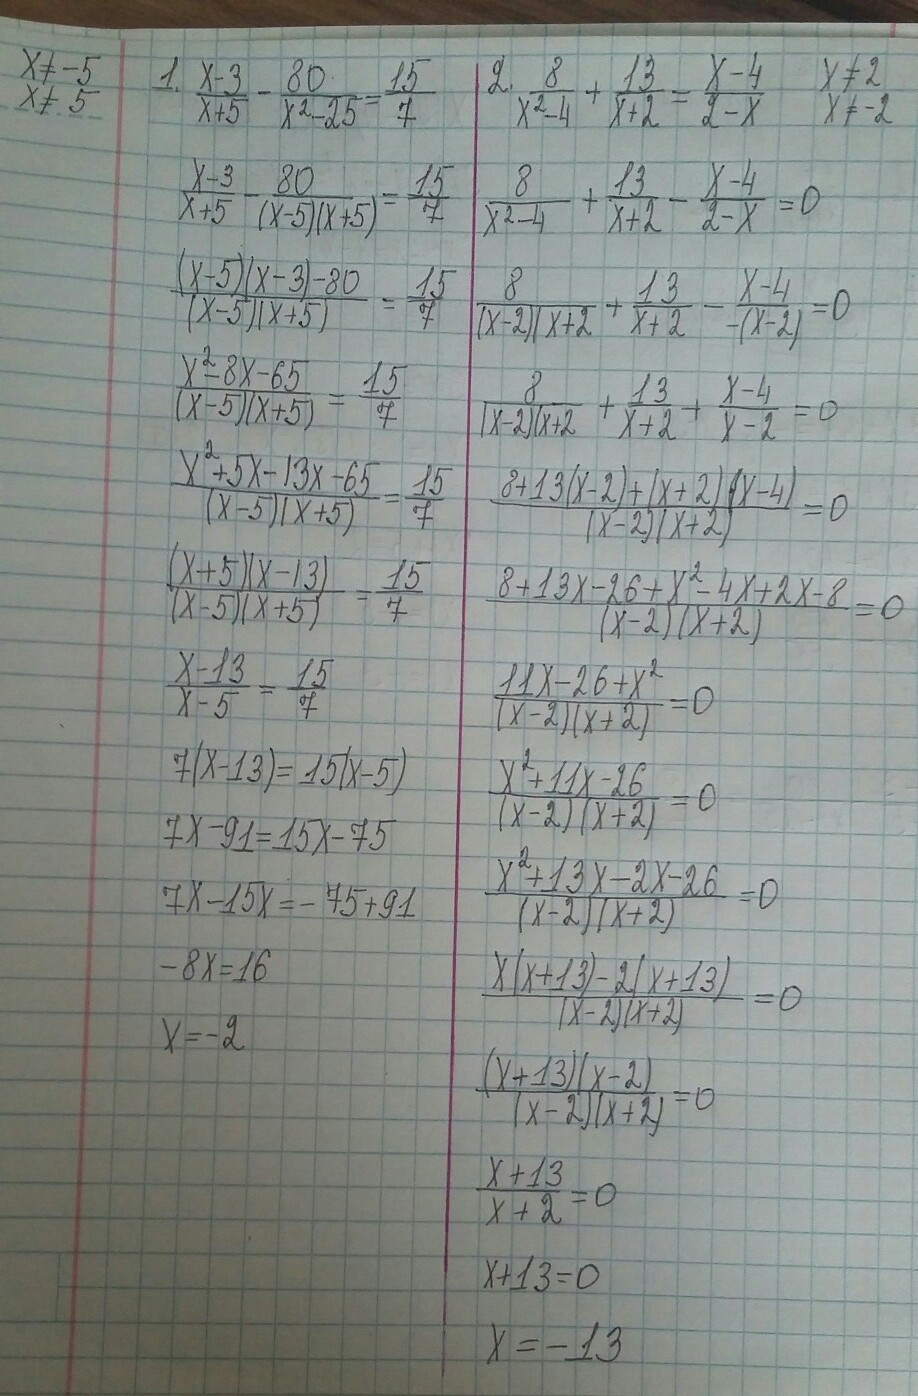 x≠-5
x≠5
1. (x-3)/(x+5) - 80/(x²-25) = 15/7
(x-3)/(x+5) - 80/((x-5)(x+5)) = 15/7
((x-5)(x-3)-80)/((x-5)(x+5)) = 15/7
(x²-8x-65)/((x-5)(x+5)) = 15/7
(x²+5x-13x-65)/((x-5)(x+5)) = 15/7
((x+5)(x-13))/((x-5)(x+5)) = 15/7
(x-13)/(x-5) = 15/7
7(x-13)=15(x-5)
7x-91=15x-75
7x-15x=-75+91
-8x=16
x=-2
2. 8/(x²-4) + 13/(x+2) = (x-4)/(2-x)
x≠2
x≠-2
8/(x²-4) + 13/(x+2) - (x-4)/(2-x) = 0
8/((x-2)(x+2) + 13/(x+2) - (x-4)/(-(x-2)) = 0
8/((x-2)(x+2) + 13/(x+2) + (x-4)/(x-2) = 0
(8+13(x-2)+(x+2)(x-4))/((x-2)(x+2)) = 0
(8+13x-26+x²-4x+2x-8)/((x-2)(x+2)) = 0
(11x-26+x²)/((x-2)(x+2)) = 0
(x²+11x-26)/((x-2)(x+2)) = 0
(x²+13x-2x-26)/((x-2)(x+2)) = 0
(x(x+13)-2(x+13))/((x-2)(x+2)) = 0
((x+13)(x-2))/((x-2)(x+2)) = 0
(x+13)/(x+2) = 0
x+13=0
x=-13